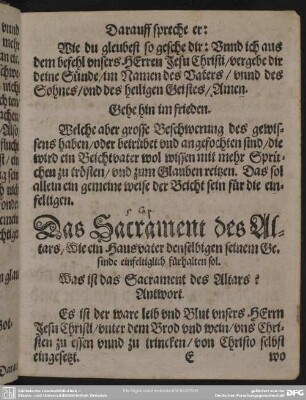 Darauff spreche er:
Wie du gleubest so gesche dir: Vnnd ich aus
dem befehl vnsers HErren Jesu Christi/vergebe dir
deine Sünde/im Namen des Vaters/ vnnd des
Sohnes/vnd des heiligen Geistes/Amen.
Gehe hin im frieden.
Welche aber grosse Beschwerung des gewis-
sens haben/oder betrübet vnd angefochten sind/die
wird ein Beichtvater wol wissen mit mehr Sprü-
chen zu trösten/ vnd zum Glauben reitzen. Das sol
allein ein gemeine weise der Beicht sein für die ein-
feltigen.
Das Sacrament des Al-
tars/Wie ein Hausvater denselbigen seinem Ge-
sinde einfeltiglich fürhalten sol.
Was ist das Sacrament des Altars?
Antwort.
Es ist der ware leib vnd Blut vnsers HErrn
Jesu Christi/vnter dem Brod vnd wein/vns Chri-
sten zu essen vnnd zu trincken/von Christo selbst
eingesetzt. E wo